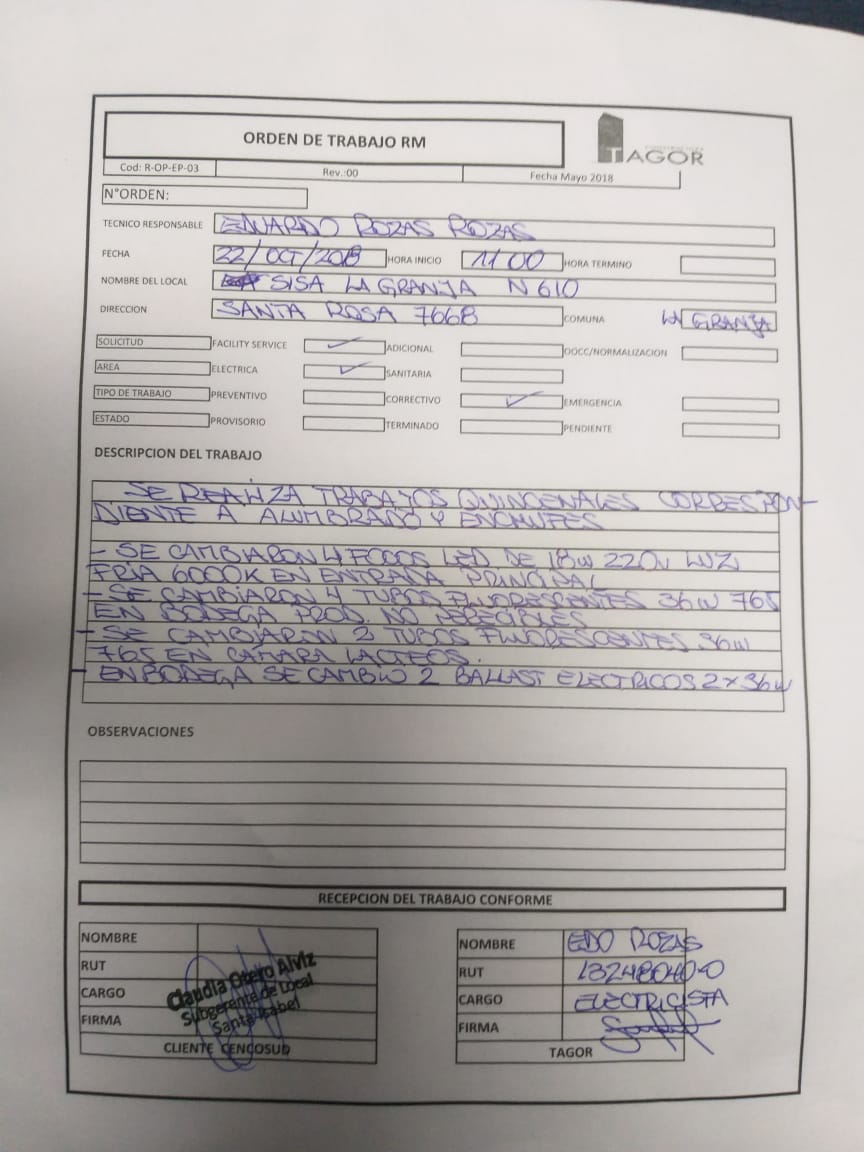 ORDEN DE TRABAJO RM
TAGOR
Cod: R-OP-EP-03 Rev.:00 Fecha Mayo 2018
N°ORDEN:
TECNICO RESPONSABLE EDUARDO ROZAS ROZAS
FECHA 22/OCT/2018 HORA INICIO 11 00 HORA TERMINO
NOMBRE DEL LOCAL SISA LA GRANJA N 610
DIRECCION SANTA ROSA 7668 COMUNA LA GRANJA
SOLICITUD FACILITY SERVICE ADICIONAL OOCC/NORMALIZACION
AREA ELECTRICA SANITARIA
TIPO DE TRABAJO PREVENTIVO CORRECTIVO EMERGENCIA
ESTADO PROVISORIO TERMINADO PENDIENTE
DESCRIPCION DEL TRABAJO
SE REALIZA TRABAJOS QUINCENALES CORRESPON-
DIENTE A ALUMBRADO Y ENCHUFES
- SE CAMBIARON 4 FOCOS LED. DE 18W 220V LUZ
FRIA 6000K EN ENTRADA PRINCIPAL
- SE CAMBIARON 4 TUBOS FLUORESCENTES 36W 765
EN BODEGA PROD. NO PERECIBLES
- SE CAMBIARON 2 TUBOS FLUORESCENTES 36W
765 EN CAMARA LACTEOS.
- EN BODEGA SE CAMBIO 2 BALLAST ELECTRICOS 2x36W
OBSERVACIONES
RECEPCION DEL TRABAJO CONFORME
NOMBRE
RUT
CARGO
FIRMA
Claudia Otero Alviz
Subgerente de Local
Santa Isabel
CLIENTE CENCOSUD
NOMBRE EDO ROZAS
RUT 13248040-0
CARGO ELECTRICISTA
FIRMA
TAGOR